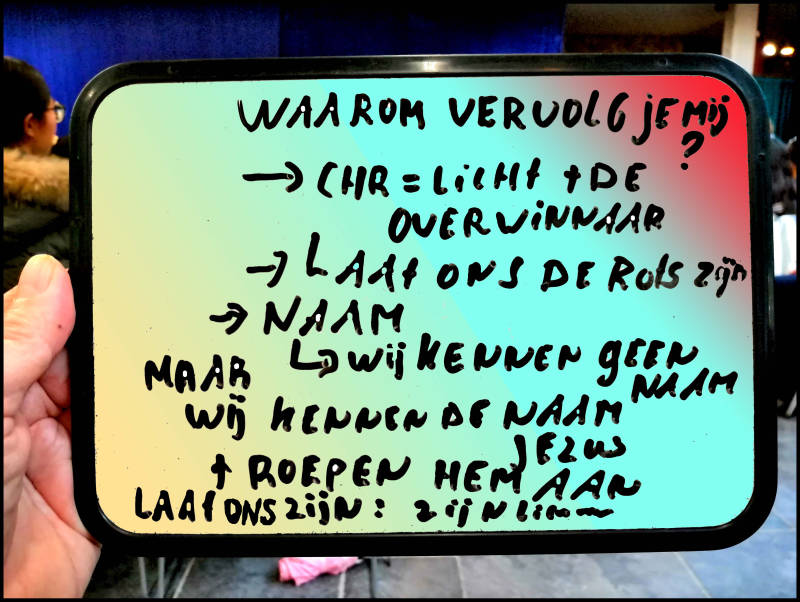 WAAROM VERVOLG jE Mij
?
→ CHR = LicHt + DE
OVERWiNNAAR
→ LAAt ONS DE Rots zijn
→ NAAM
↳ wij KENNEN gEEN
NAAM
MAAR
wij KENNEN DE NAAM
JEzus
+ ROEPEN HEM AAN
LAAt ONS zijN : zijN